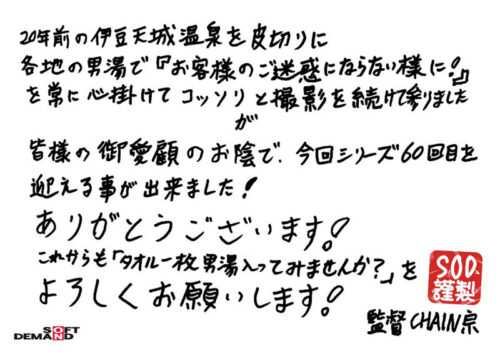 20年前の伊豆天城温泉を皮切りに
各地の男湯で『お客様のご迷惑にならない様に!』
を常に心掛けてコッソリと撮影を続けて参りました
が
皆様の御愛顧のお陰で、今回シリーズ60回目を
迎える事が出来ました!
ありがとうございます!
これからも「タオル一枚男湯入ってみませんか?」を
よろしくお願いします!
SOD.
謹製
監督 CHAIN宗
SOFT
DEMAND